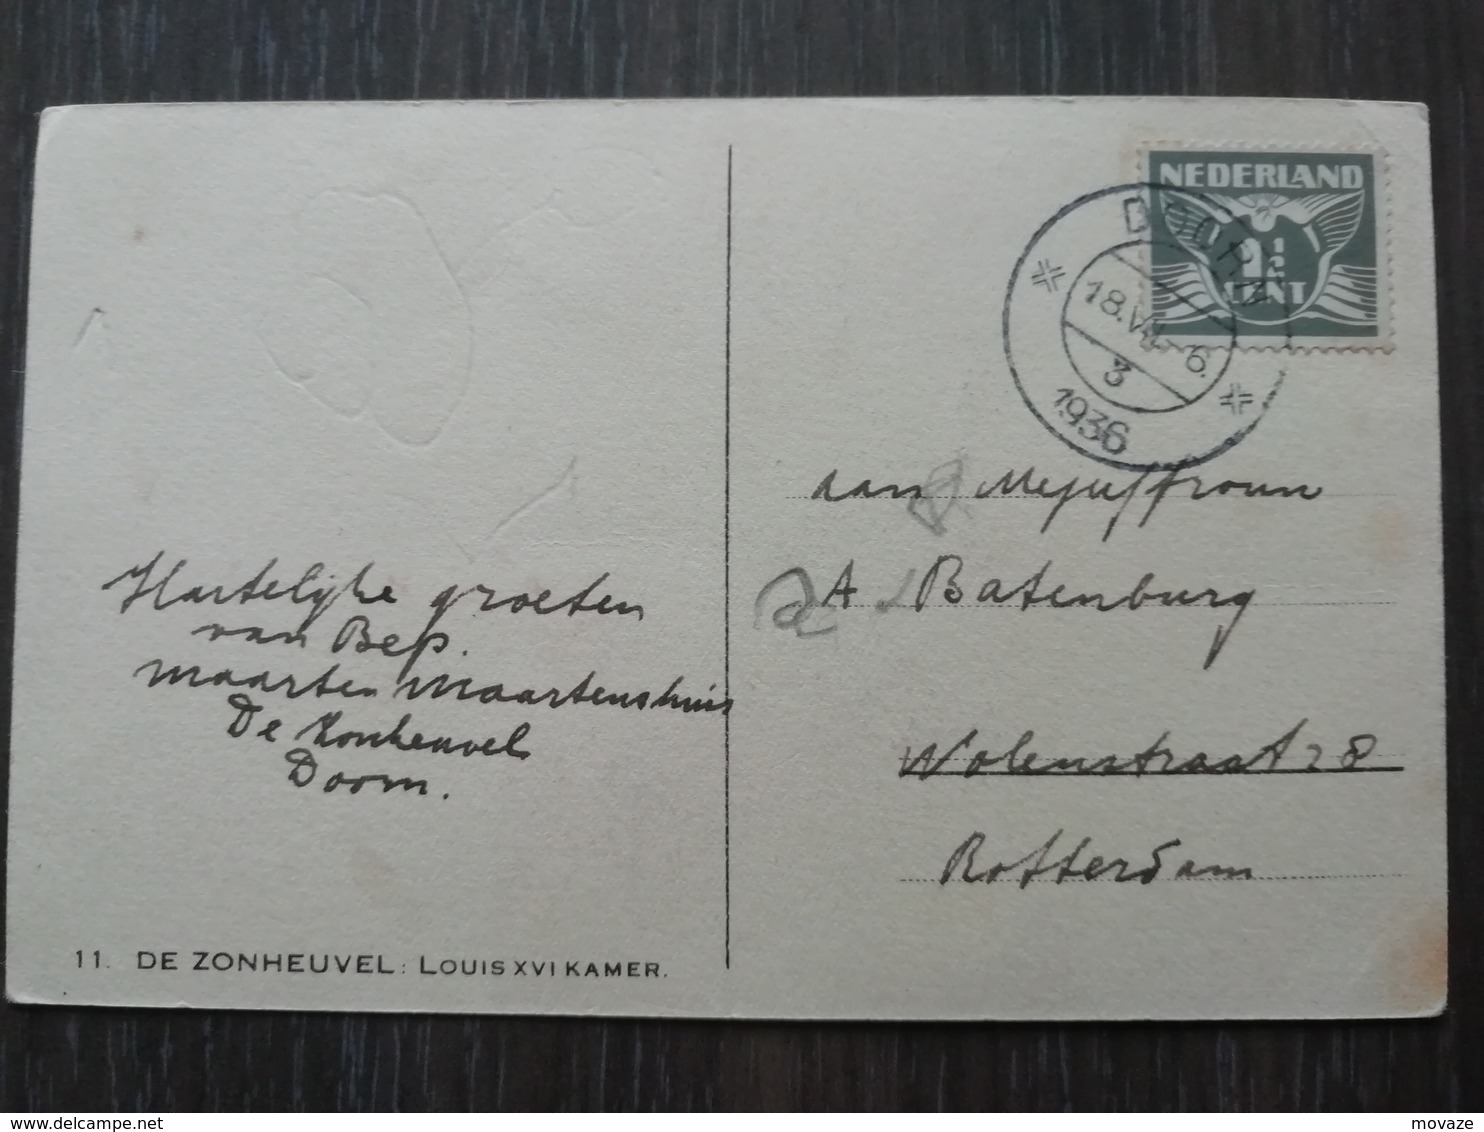 Hartelijke groeten
van Bep.
maarten maartenshuis
De Zonheuvel
Doorn.
11. DE ZONHEUVEL: LOUIS XVI KAMER.
NEDERLAND
1½
CENT
DOORN
18.VII. 6.
3
1936
aan Mejuffrouw
A Batenburg
Wolenstraat 28
Rotterdam
delcampe.net
movaze